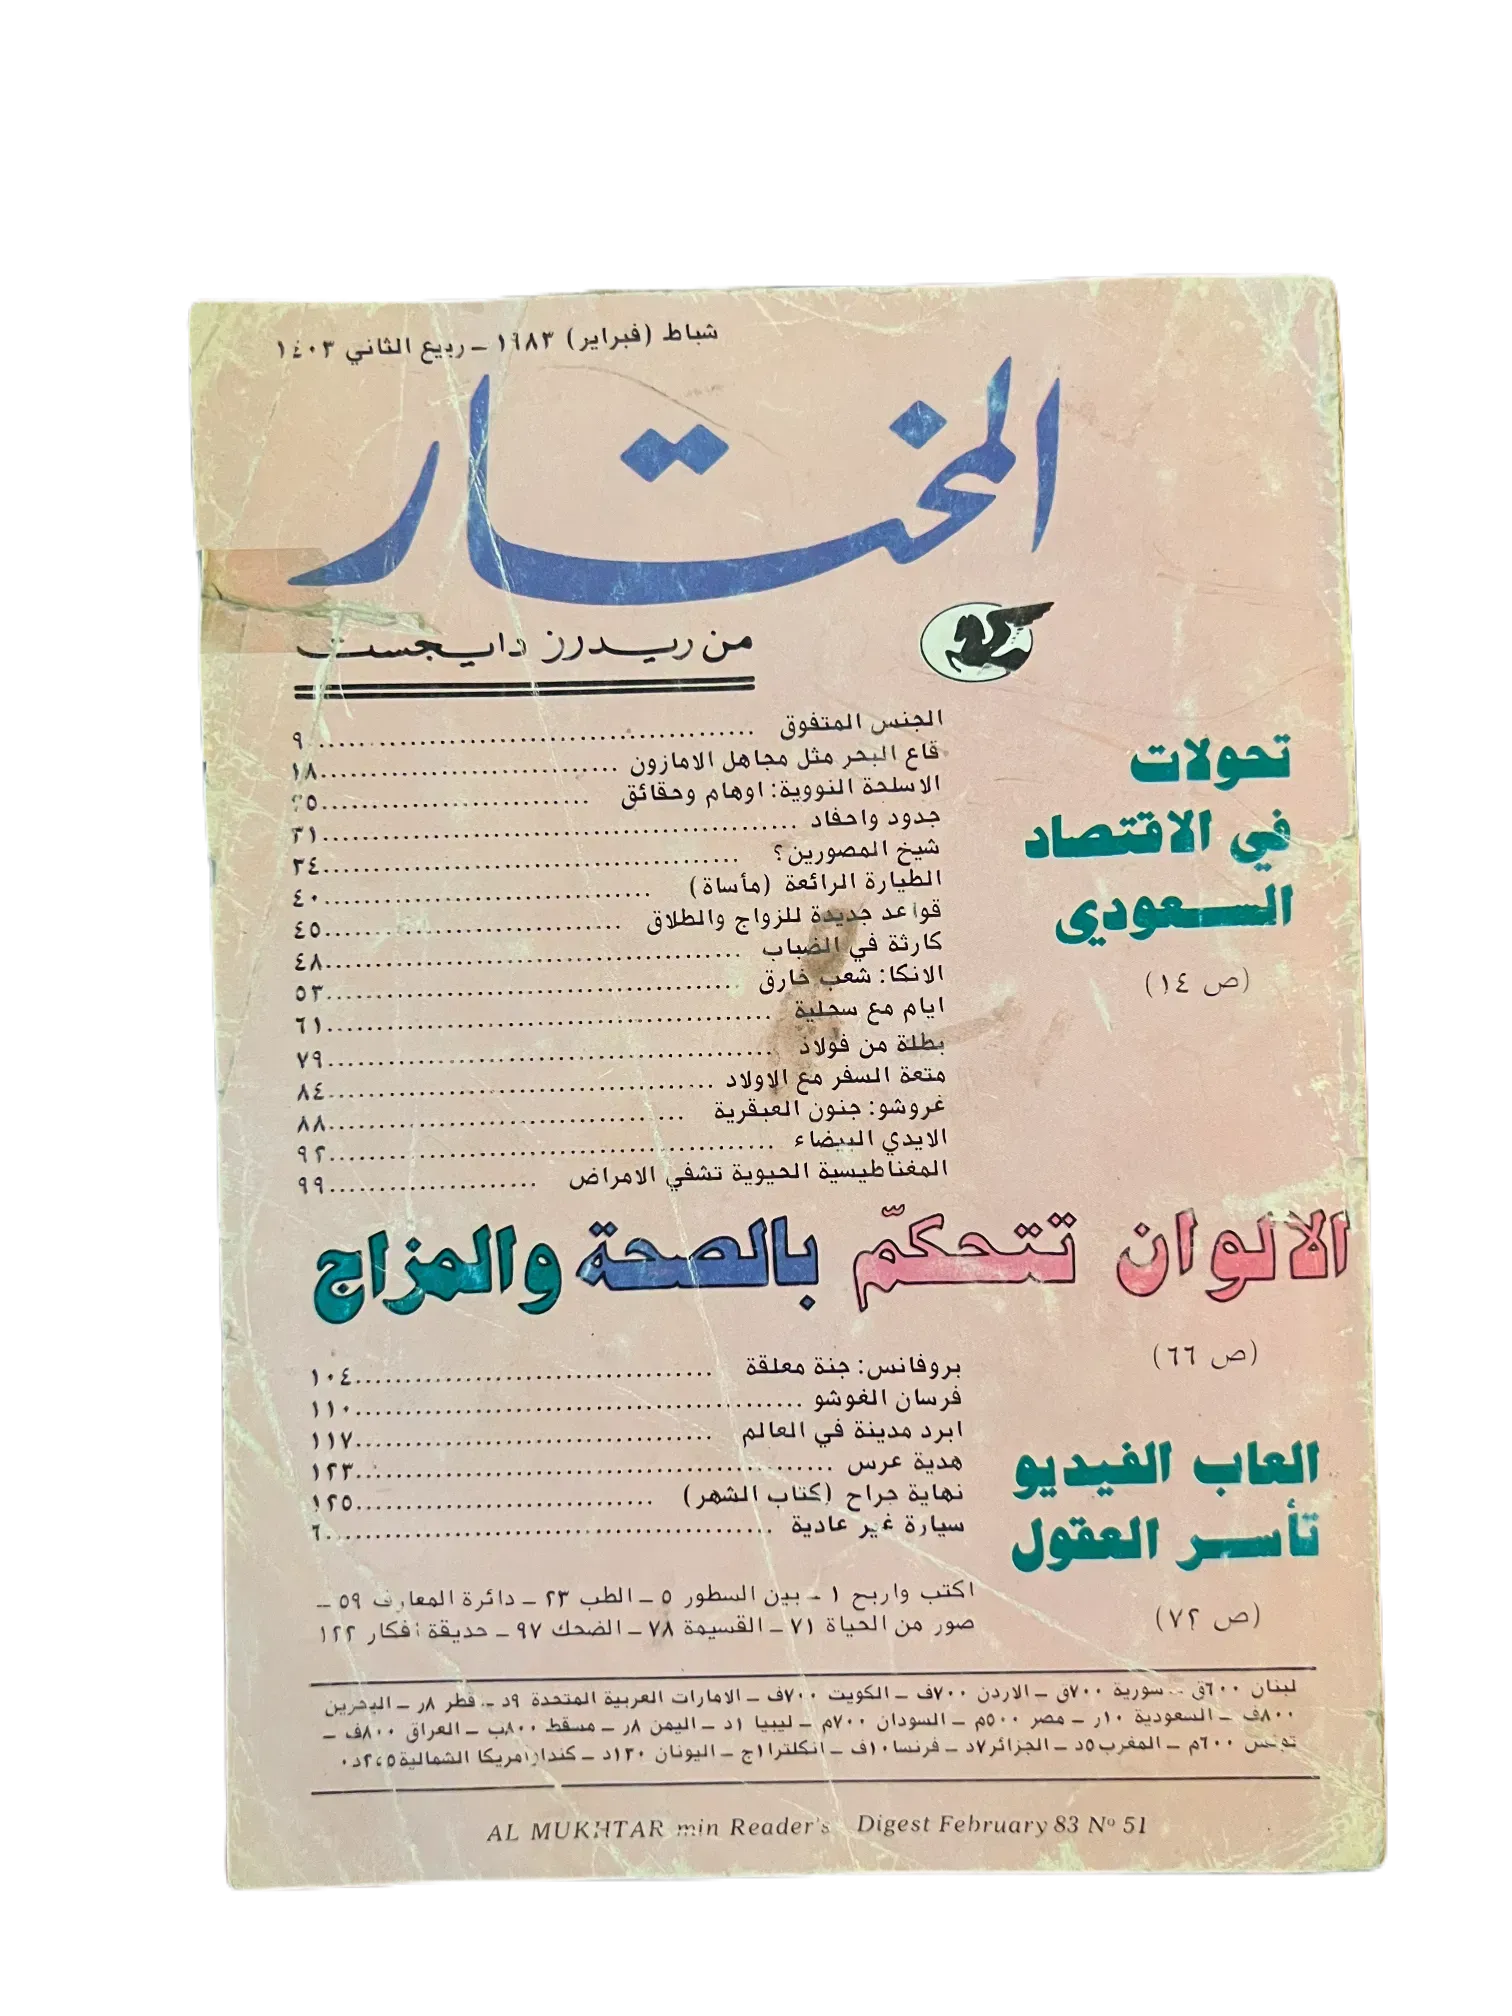 شباط (فبراير) ١٩٨٣ - ربيع الثاني ١٤٠٣
المختار
من ريدرز دايجست
الجنس المتفوق ........ ٩
قاع البحر مثل مجاهل الامازون ........ ١٨
الاسلحة النووية: اوهام وحقائق ........ ٢٥
جدود واحفاد ........ ٣١
شيخ المصورين؟ ........ ٣٤
الطيارة الرائعة (مأساة) ........ ٤٠
قواعد جديدة للزواج والطلاق ........ ٤٥
كارثة في الضباب ........ ٤٨
الانكا: شعب خارق ........ ٥٣
ايام مع سحلية ........ ٦١
بطلة من فولاذ ........ ٧٩
متعة السفر مع الاولاد ........ ٨٤
غروشو: جنون العبقرية ........ ٨٨
الايدي البيضاء ........ ٩٢
المغناطيسية الحيوية تشفي الامراض ........ ٩٩
تحولات
في الاقتصاد
السعودي
(ص ١٤)
الالوان تتحكّم بالصحة والمزاج
(ص ٦٦)
بروفانس: جنة معلقة ........ ١٠٤
فرسان الغوشو ........ ١١٠
ابرد مدينة في العالم ........ ١١٧
هدية عرس ........ ١٢٣
نهاية جراح (كتاب الشهر) ........ ١٢٥
سيارة غير عادية ........ ٦
العاب الفيديو
تأسر العقول
(ص ٧٢)
اكتب واربح ١ - بين السطور ٥ - الطب ٢٣ - دائرة المعارف ٥٩ -
صور من الحياة ٧١ - القسيمة ٧٨ - الضحك ٩٧ - حديقة أفكار ١٢٢
لبنان ٦٠٠ق - سورية ٧٠٠ق - الاردن ٧٠٠ف - الكويت ٧٠٠ف - الامارات العربية المتحدة ٩د - قطر ٨ر - البحرين
٨٠٠ف - السعودية ١٠ر - مصر ٥٠٠م - السودان ٧٠٠م - ليبيا ١د - اليمن ٨ر - مسقط ٨٠٠ب - العراق ٨٠٠ف -
تونس ٦٠٠م - المغرب ٥د - الجزائر ٧د - فرنسا ١٠ف - انكلترا ١ج - اليونان ١٣٠د - كندا/امريكا الشمالية
AL MUKHTAR min Reader's Digest February 83 Nº 51